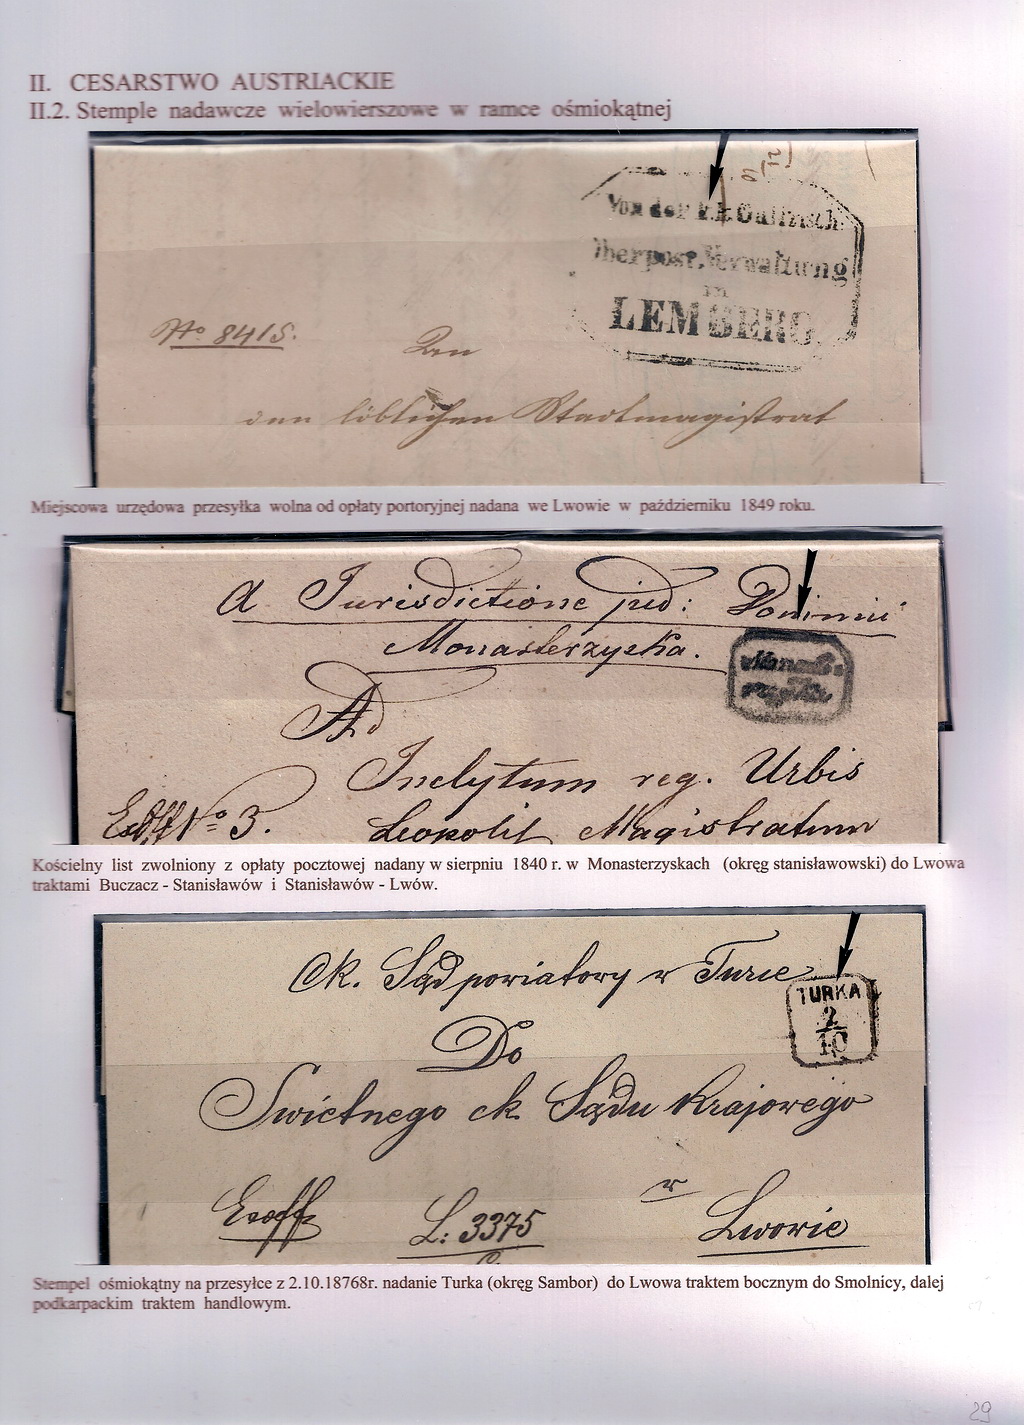 II. CESARSTWO AUSTRIACKIE
II.2. Stemple nadawcze wielowierszowe w ramce ośmiokątnej
Von der k.k. Gallizisch:
Oberpost.Verwaltung
in
LEMBERG.
No 8415.
den löblichen Stadtmagistrat
Miejscowa urzędowa przesyłka wolna od opłaty portoryjnej nadana we Lwowie w październiku 1849 roku.
A Jurisdictione jud: Dominii
Monasterzyska.
Ad
Inclytum reg. Urbis
Exoff No 3. Leopolis Magistratum
Kościelny list zwolniony z opłaty pocztowej nadany w sierpniu 1840 r. w Monasterzyskach (okręg stanisławowski) do Lwowa
traktami Buczacz - Stanisławów i Stanisławów - Lwów.
Ck. Sąd powiatowy w Turce
TURKA
2
10
Do
Swietnego ck. Sądu Krajowego
w
Exoff L: 3375 Lwowie
Stempel ośmiokątny na przesyłce z 2.10.18768r. nadanie Turka (okręg Sambor) do Lwowa traktem bocznym do Smolnicy, dalej
podkarpackim traktem handlowym.
29